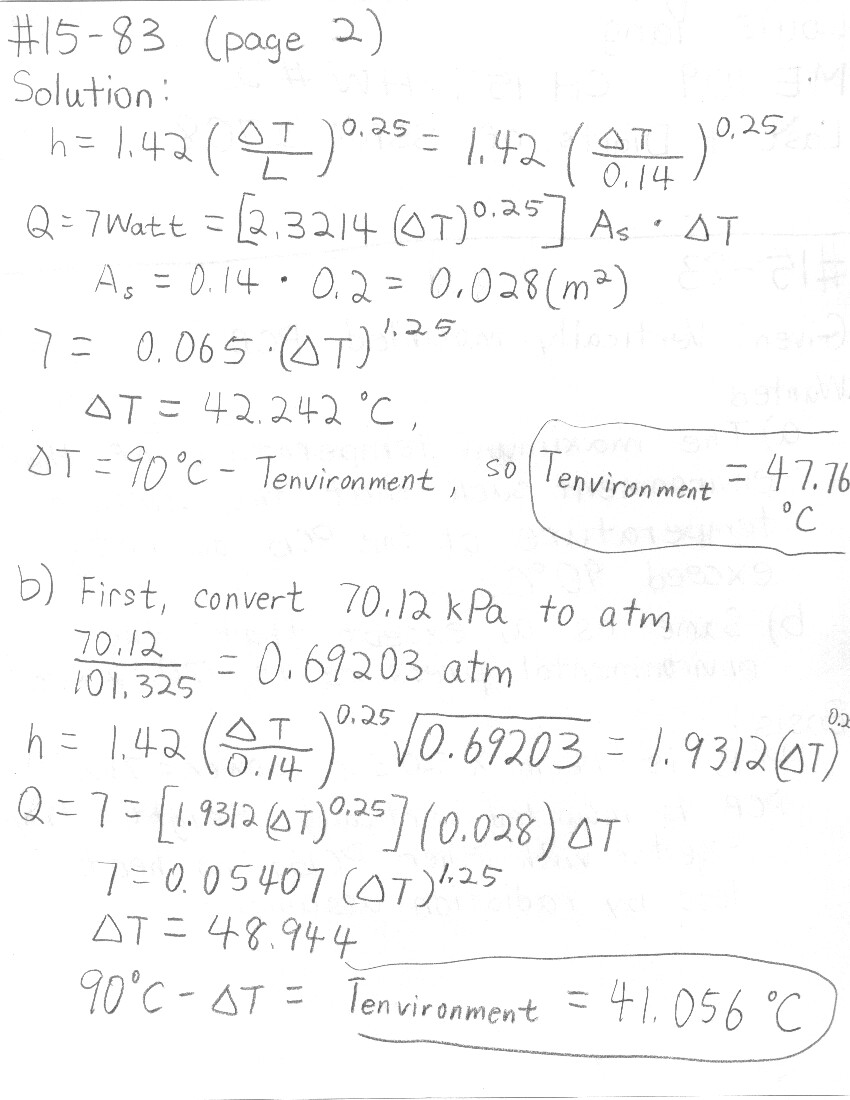 #15-83 (page 2)
Solution:
h = 1.42 (ΔT/L)^0.25 = 1.42 (ΔT/0.14)^0.25
Q = 7Watt = [2.3214 (ΔT)^0.25] As · ΔT
As = 0.14 · 0.2 = 0.028(m²)
7 = 0.065·(ΔT)^1.25
ΔT = 42.242 °C,
ΔT = 90°C - Tenvironment, so Tenvironment = 47.76 °C
b) First, convert 70.12 kPa to atm
70.12/101.325 = 0.69203 atm
h = 1.42 (ΔT/0.14)^0.25 √0.69203 = 1.9312(ΔT)^0.2
Q = 7 = [1.9312(ΔT)^0.25](0.028) ΔT
7 = 0.05407 (ΔT)^1.25
ΔT = 48.944
90°C - ΔT = Tenvironment = 41.056 °C